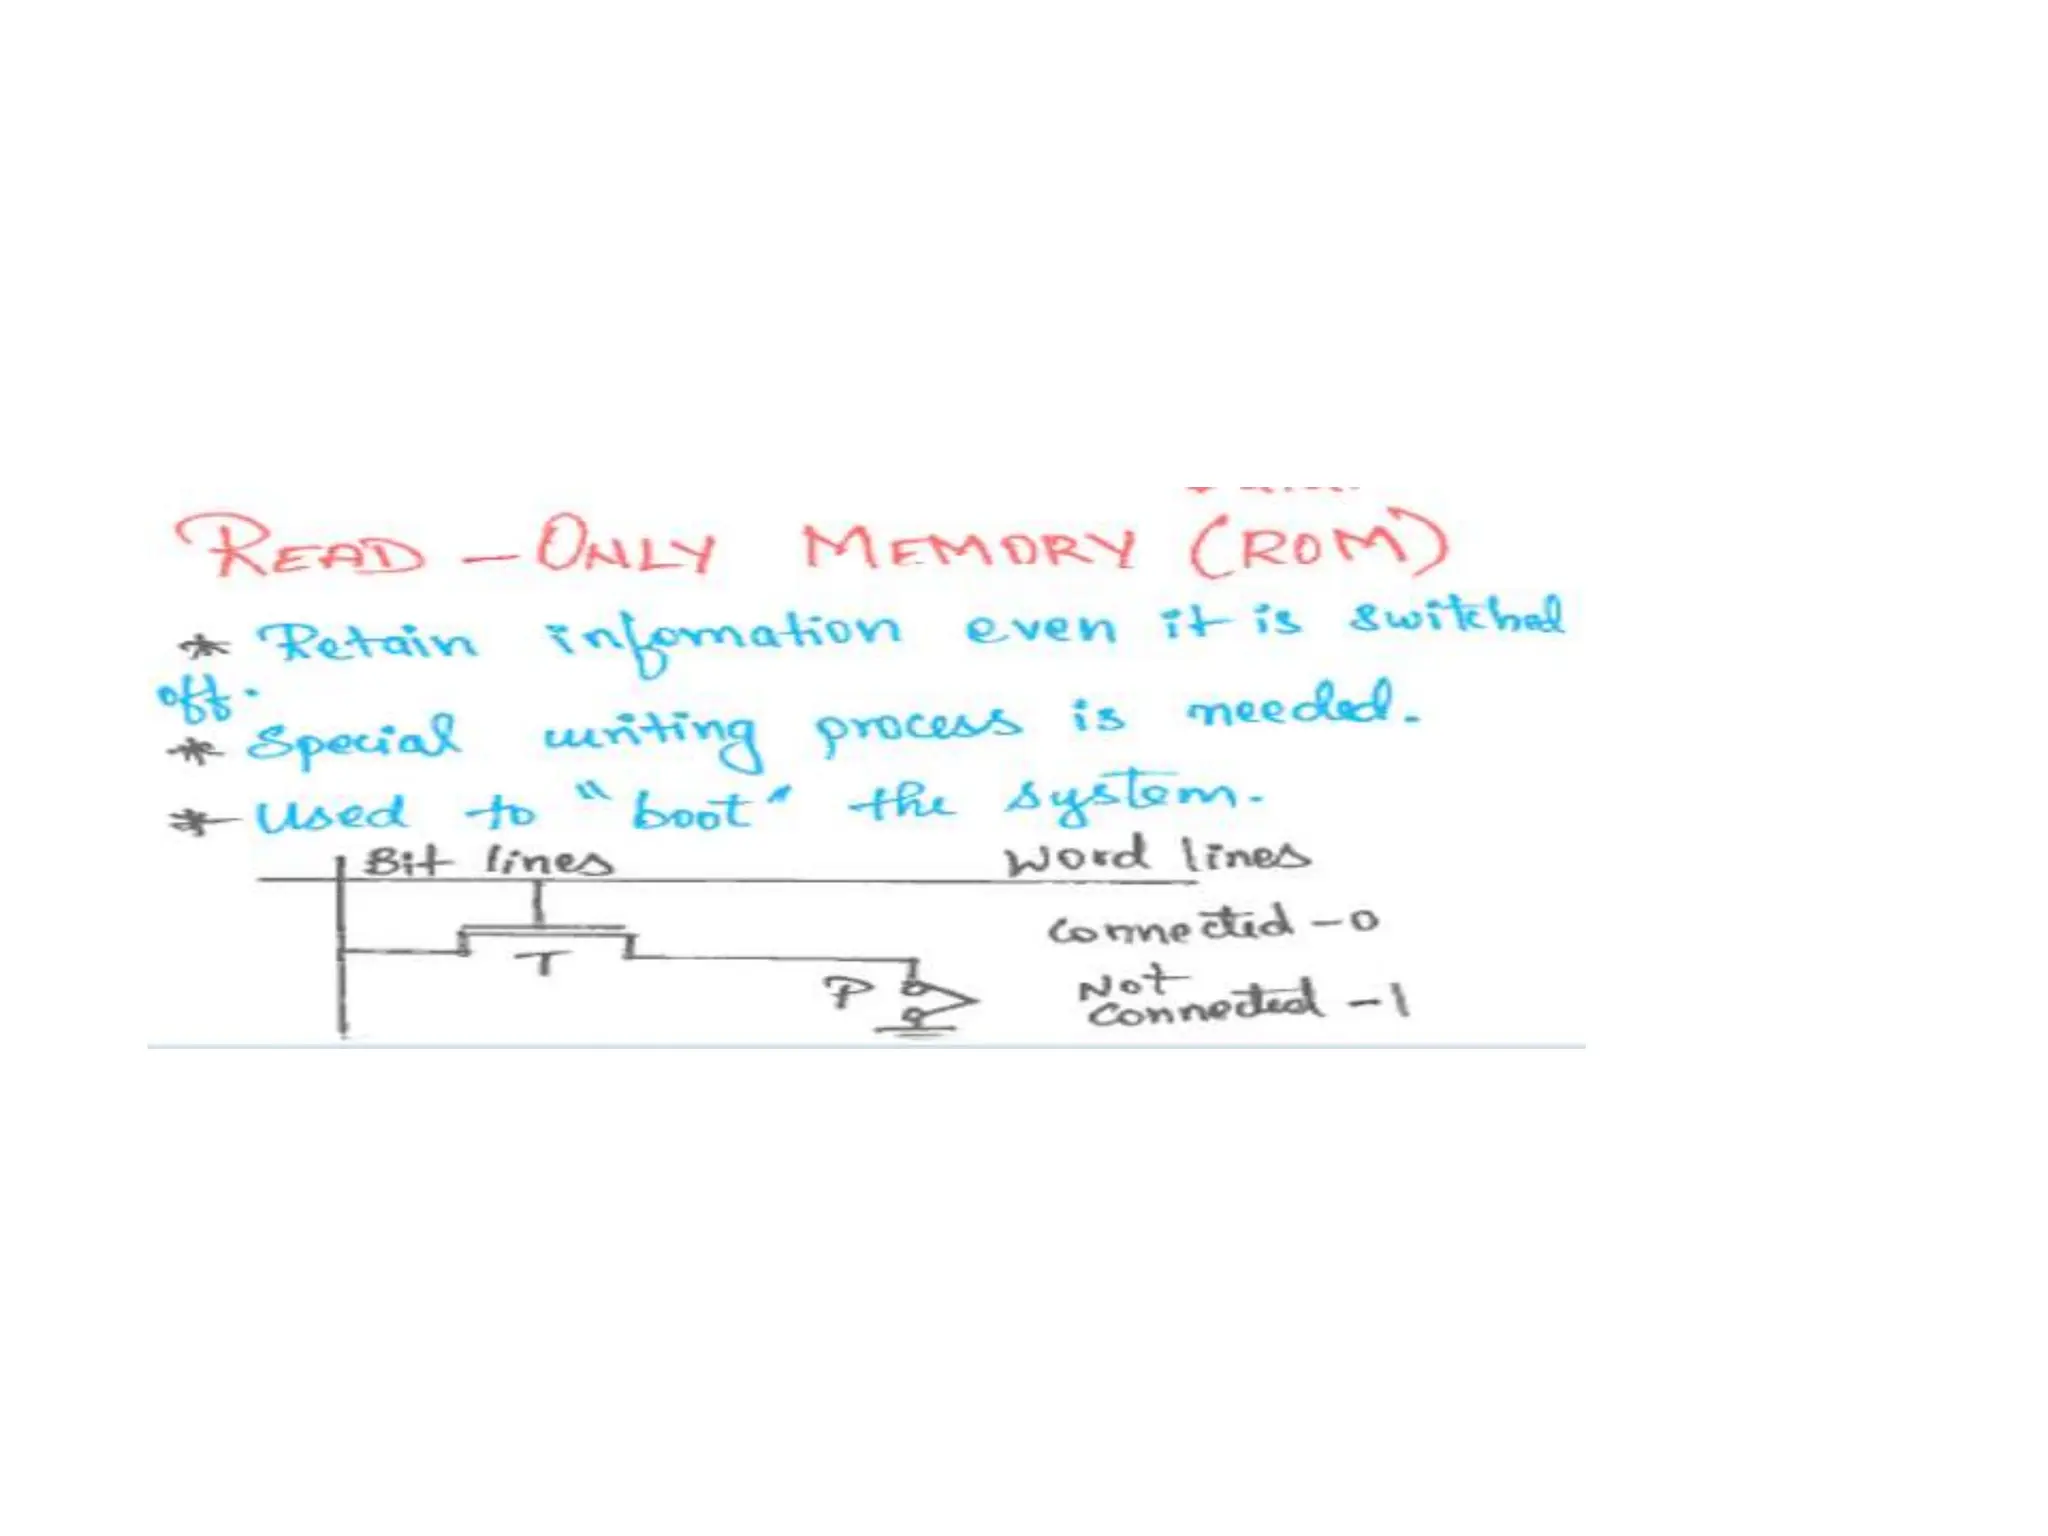 READ-ONLY MEMORY (ROM)
* Retain infomation even it is switched
off.
* Special writing process is needed.
* Used to "boot" the system.
Bit lines Word lines
T
Connected - 0
P
Not
connected - 1